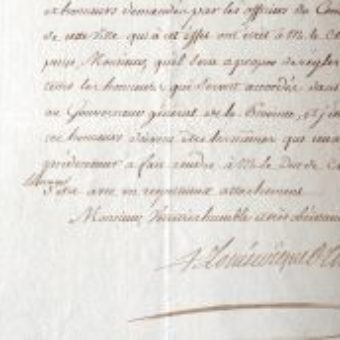 et honneurs demandés par les officiers du Con
de cette Ville qui à cet effet ont écrit à M. le C
Monsieur, qu'il sera à propos de régler
tous les honneurs qui seront accordés dans
au Gouverneur général de la Province, et j'e
ces honneurs doivent être les mêmes que
a fait rendre à M. le Duc de C
J'ai avec un respectueux attachement
Monsieur, Votre très humble et très obéissant